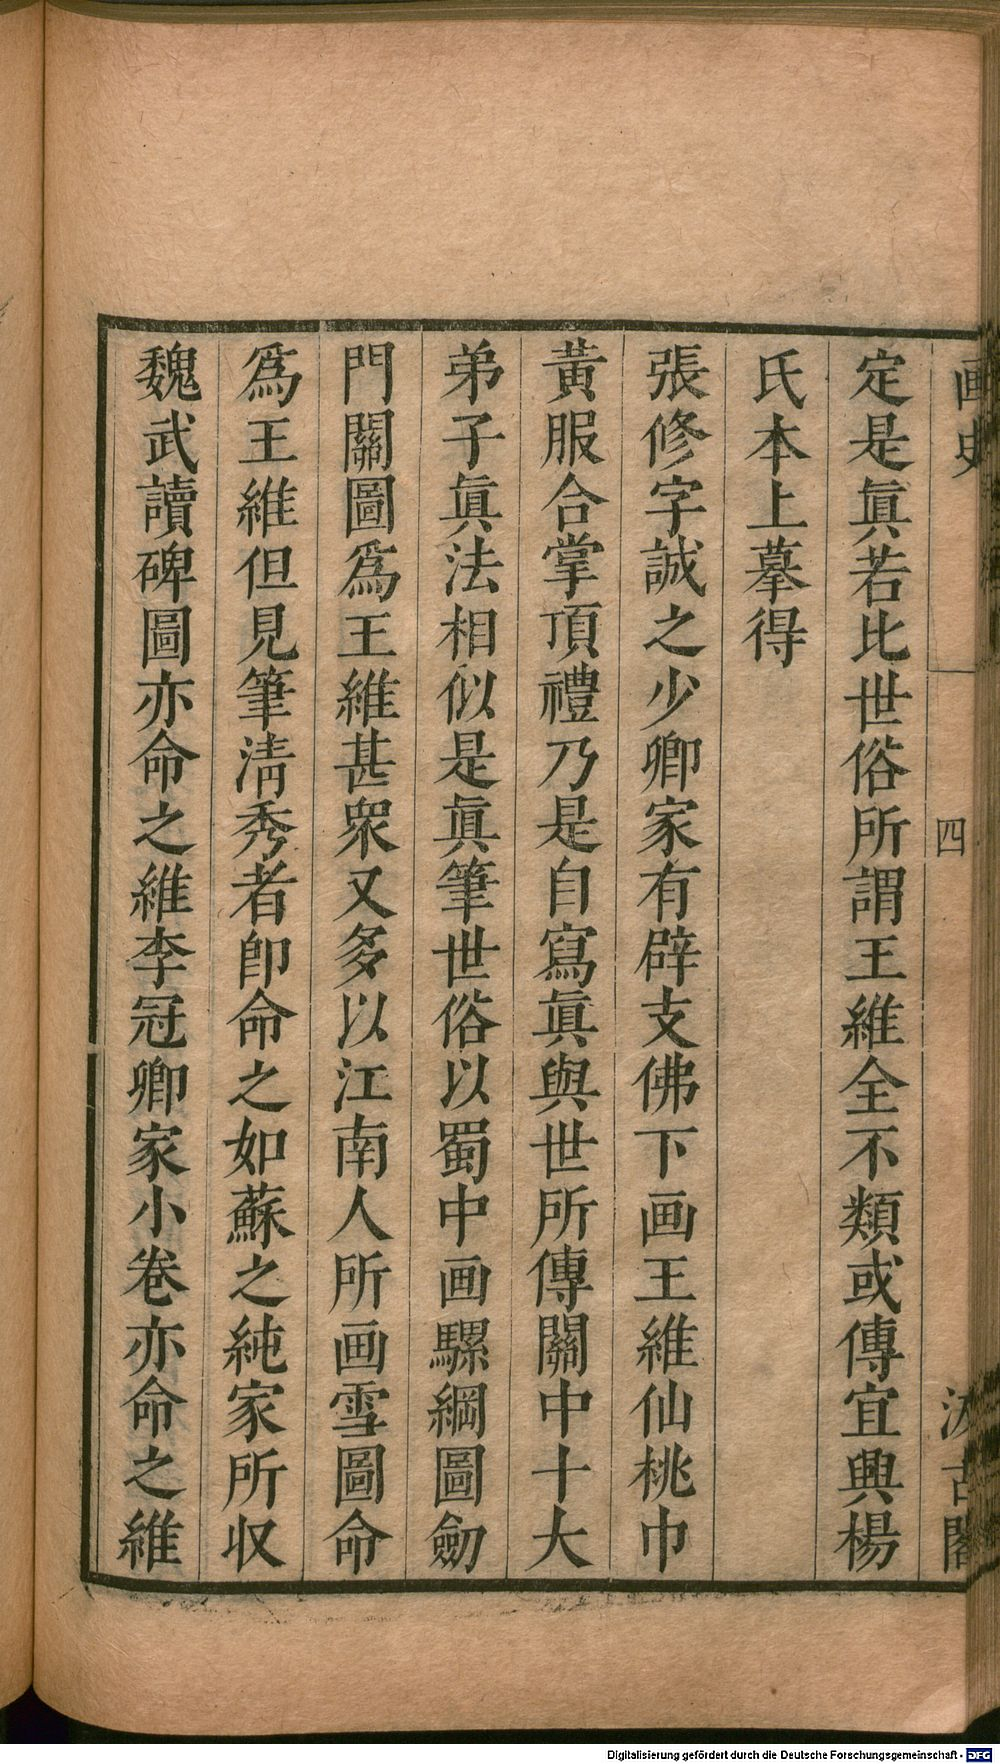 画史
四
汲古閣
定是眞若比世俗所謂王維全不類或傳宜興楊
氏本上摹得
張修字誠之少卿家有辟支佛下画王維仙桃巾
黃服合掌頂禮乃是自寫眞與世所傳關中十大
弟子眞法相似是眞筆世俗以蜀中画騾綱圖劒
門關圖爲王維甚衆又多以江南人所画雪圖命
爲王維但見筆淸秀者卽命之如蘇之純家所収
魏武讀碑圖亦命之維李冠卿家小卷亦命之維
Digitalisierung gefördert durch die Deutsche Forschungsgemeinschaft - DFG